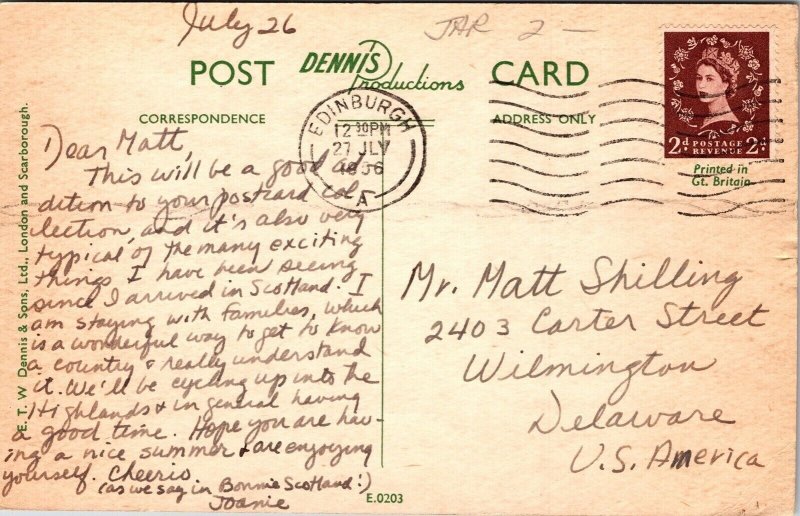 July 26
JAR 2 —
POST DENNIS Productions CARD
CORRESPONDENCE
ADDRESS ONLY
EDINBURGH
12 30PM
27 JLY
1956
A
2d POSTAGE 2d
REVENUE
Printed in
Gt. Britain
Dear Matt,
This will be a good ad
dition to your postcard col
lection, and it's also very
typical of the many exciting
things I have been seeing
since I arrived in Scotland. I
am staying with families, which
is a wonderful way to get to know
a country & really understand
it. We'll be cycling up into the
Highlands & in general having
a good time. Hope you are hav-
ing a nice summer & are enjoying
yourself. Cheerio
(as we say in Bonnie Scotland!)
Joanie
Mr. Matt Shilling
2403 Carter Street
Wilmington
Delaware
U.S. America
E. T. W. Dennis & Sons, Ltd., London and Scarborough.
E.0203